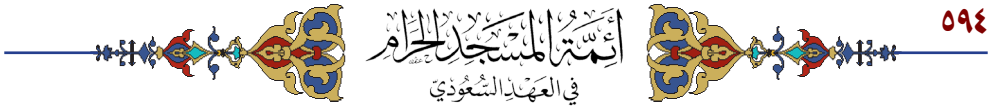 ٥٩٤
أَئِمَّةُ المَسْجِدِ الحَرَامِ
فِي العَهْدِ السُّعُودِيّ